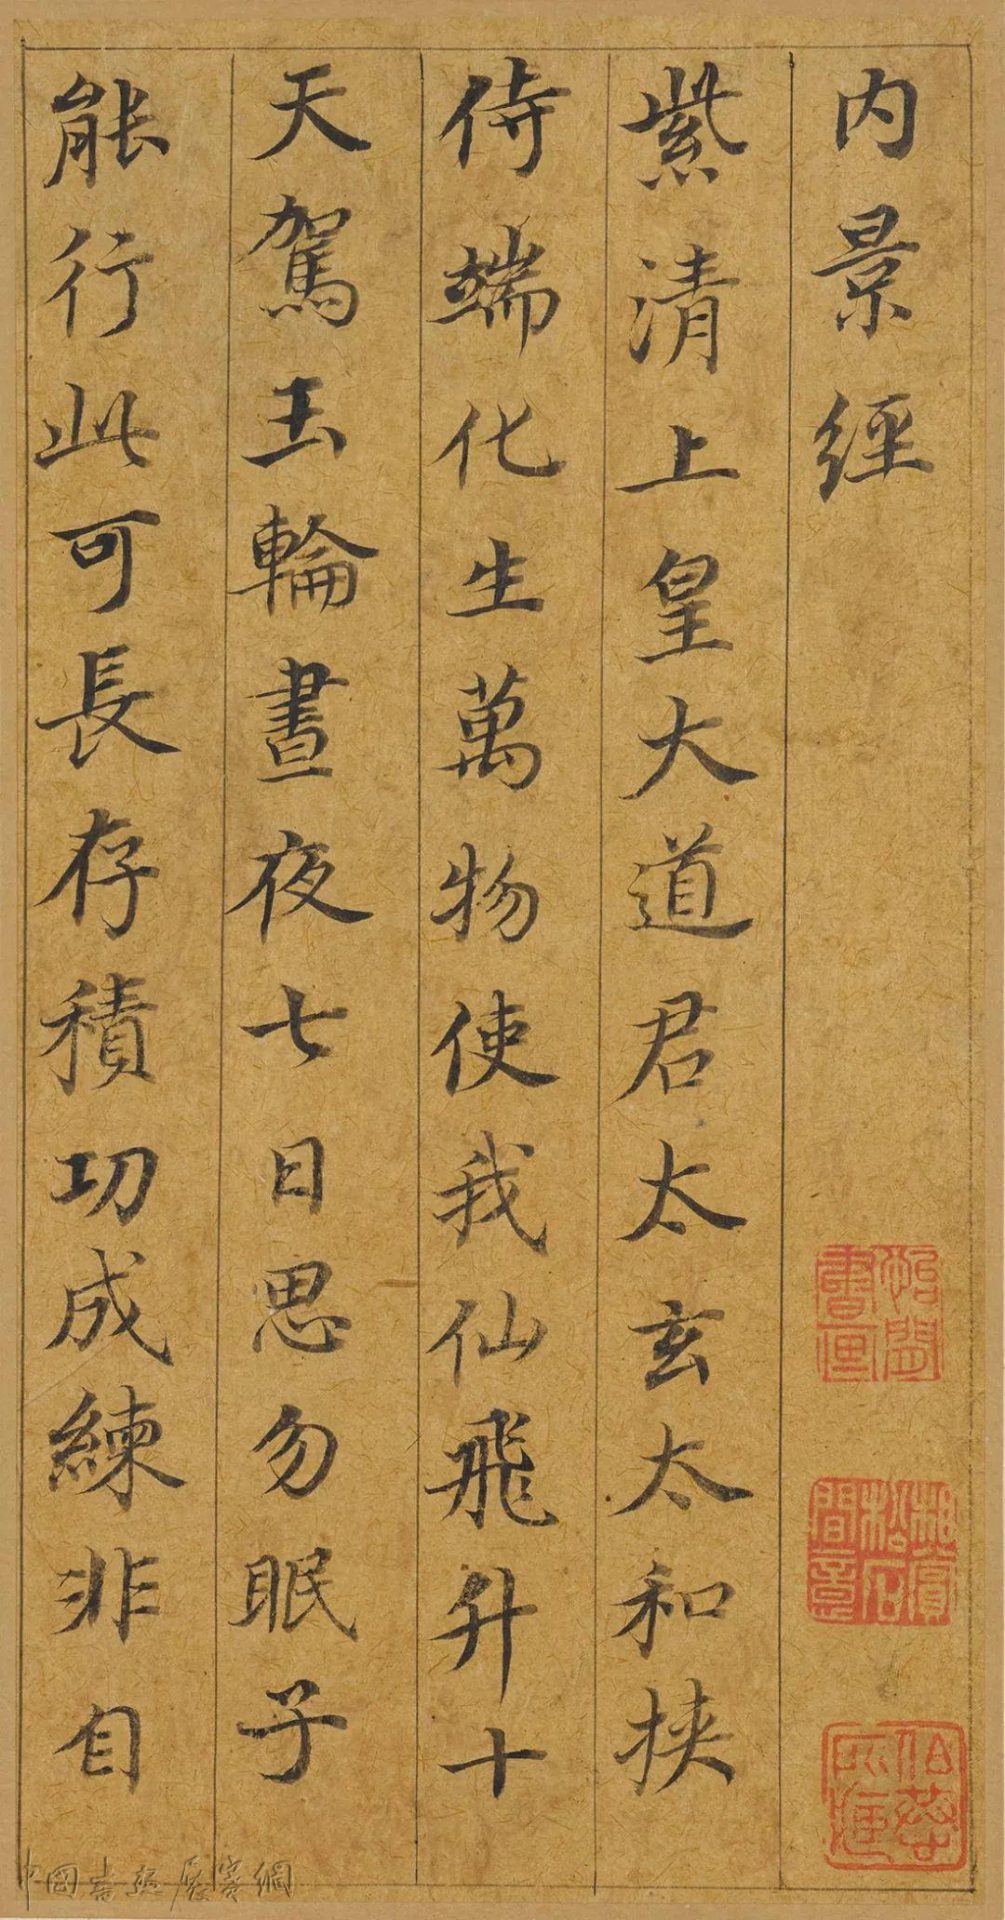 内景經
紫清上皇大道君太玄太和挾
侍端化生萬物使我仙飛升十
天駕玉輪晝夜七日思勿眠子
能行此可長存積功成練非自
相賞松石間意